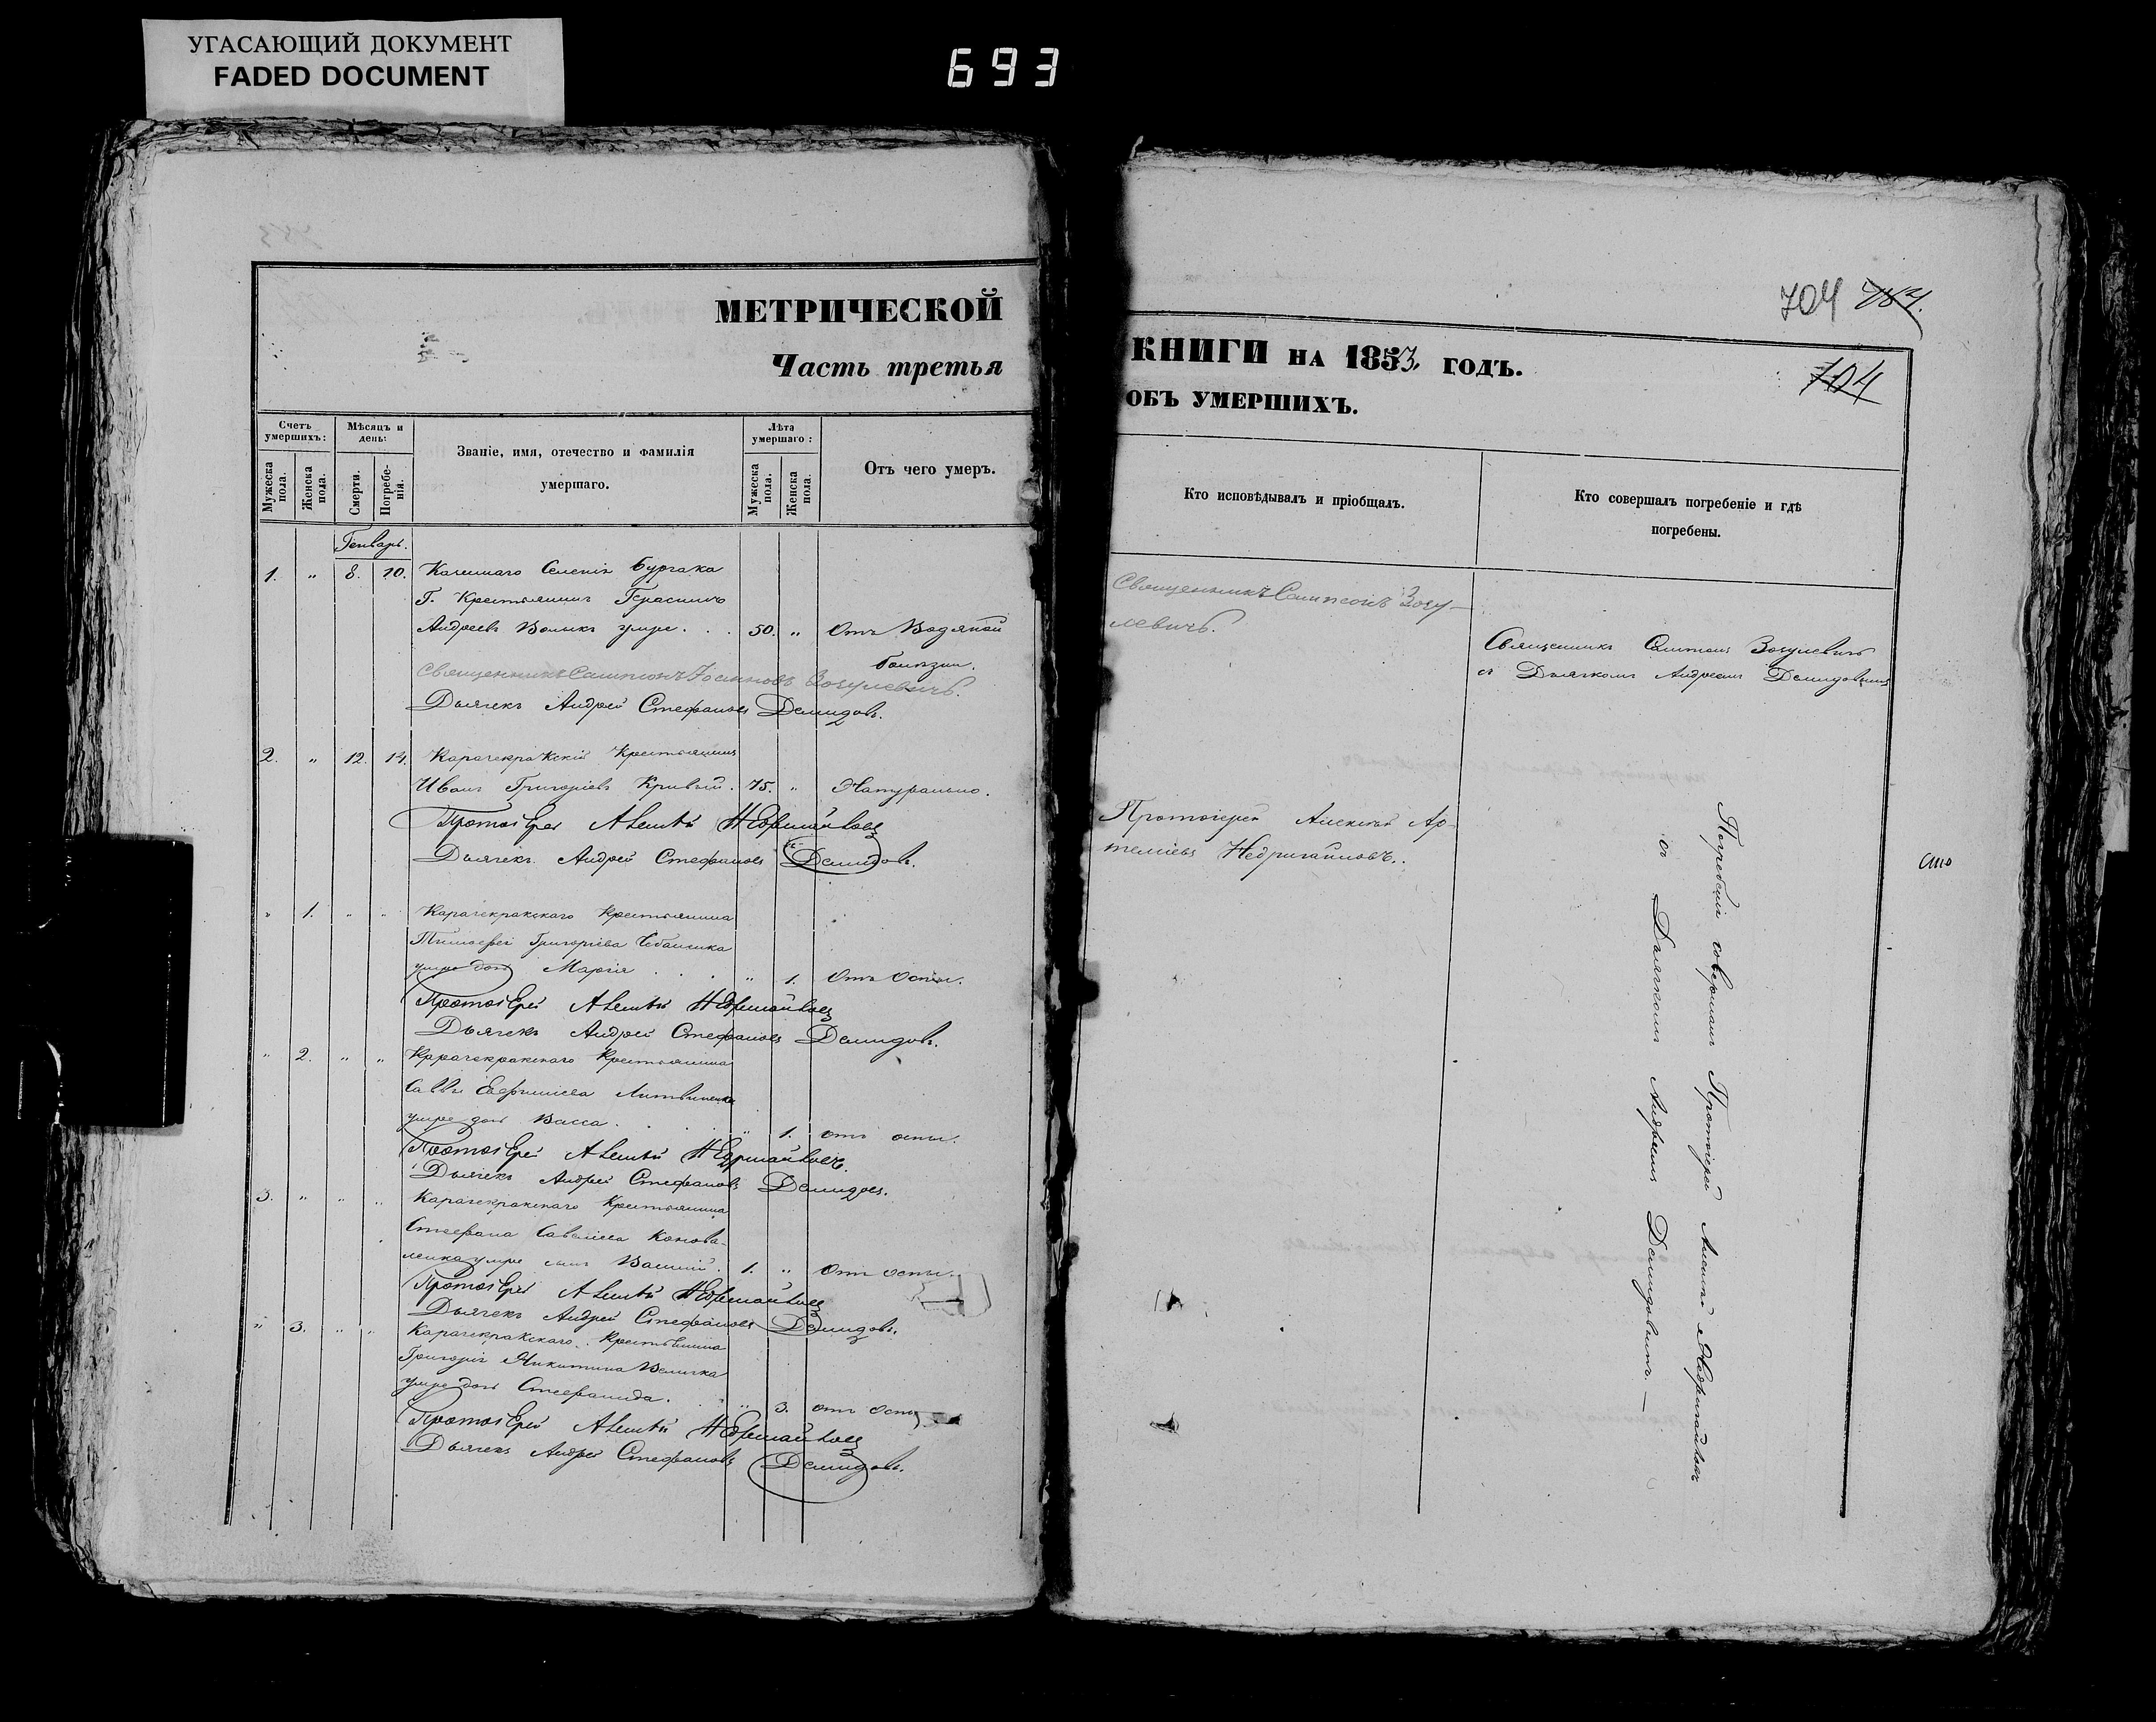 УГАСАЮЩИЙ ДОКУМЕНТ
FADED DOCUMENT
693
МЕТРИЧЕСКОЙ
Часть третья
Счетъ умершихъ:
Мѣсяцъ и день:
Званіе, имя, отечество и фамилія умершаго.
Лѣта умершаго:
Отъ чего умеръ.
Мужеска пола.
Женска пола.
Смерти.
Погребенія.
Мужеска пола.
Женска пола.
Генварь.
1. " 8. 10. Селенія Бургака
Г. Крестьянинъ Герасимъ
Андреевъ Волыкъ умре . . . 50. " Отъ Водяной
болѣзни.
Священникъ Сампсонъ Іоанновъ Зозулевичъ.
Дьячекъ Андрей Стефановъ Демидовъ.
2. " 12. 14. Карачекракскій Крестьянинъ
Иванъ Григоріевъ Кривый. 75. " Натурально.
Протоіерей Алексѣй
Дьячекъ Андрей Стефановъ Демидовъ.
" 1. " " Карачекракскаго Крестьянина
Тимофея Григоріева
умре дочь Марія . . . " 1. Отъ Оспы.
Протоіерей Алексѣй
Дьячекъ Андрей Стефановъ Демидовъ.
" 2. " " Карачекракскаго Крестьянина
Саввы Литвиненка
умре дочь Васса. . . . " 1. отъ оспы.
Протоіерей Алексѣй
Дьячекъ Андрей Стефановъ Демидовъ.
3. " " " Карачекракскаго Крестьянина
Стефана Савеліева Конова-
ленка умре сынъ Василій. 1. " Отъ оспы.
Протоіерей Алексѣй
Дьячекъ Андрей Стефановъ Демидовъ.
" 3. " " Карачекракскаго Крестьянина
Григорія Никитина Величка
умре дочь Стефанида. . " 3. отъ Оспы
Протоіерей Алексѣй
Дьячекъ Андрей Стефановъ Демидовъ.
704 784.
КНИГИ НА 1853. ГОДЪ.
704
ОБЪ УМЕРШИХЪ.
Кто исповѣдывалъ и пріобщалъ.
Кто совершалъ погребеніе и гдѣ погребены.
Священникъ Сампсонъ Зозу-
левичъ.
Священникъ Сампсонъ Зозулевичъ
съ Дьячкомъ Андреемъ Демидовымъ
Протоіерей Алексѣй Ар-
теміевъ Недригайловъ.
Погребеніе совершалъ Протоіерей Алексѣй Недригайловъ
съ Дьячкомъ Андреемъ Демидовымъ. —
сто